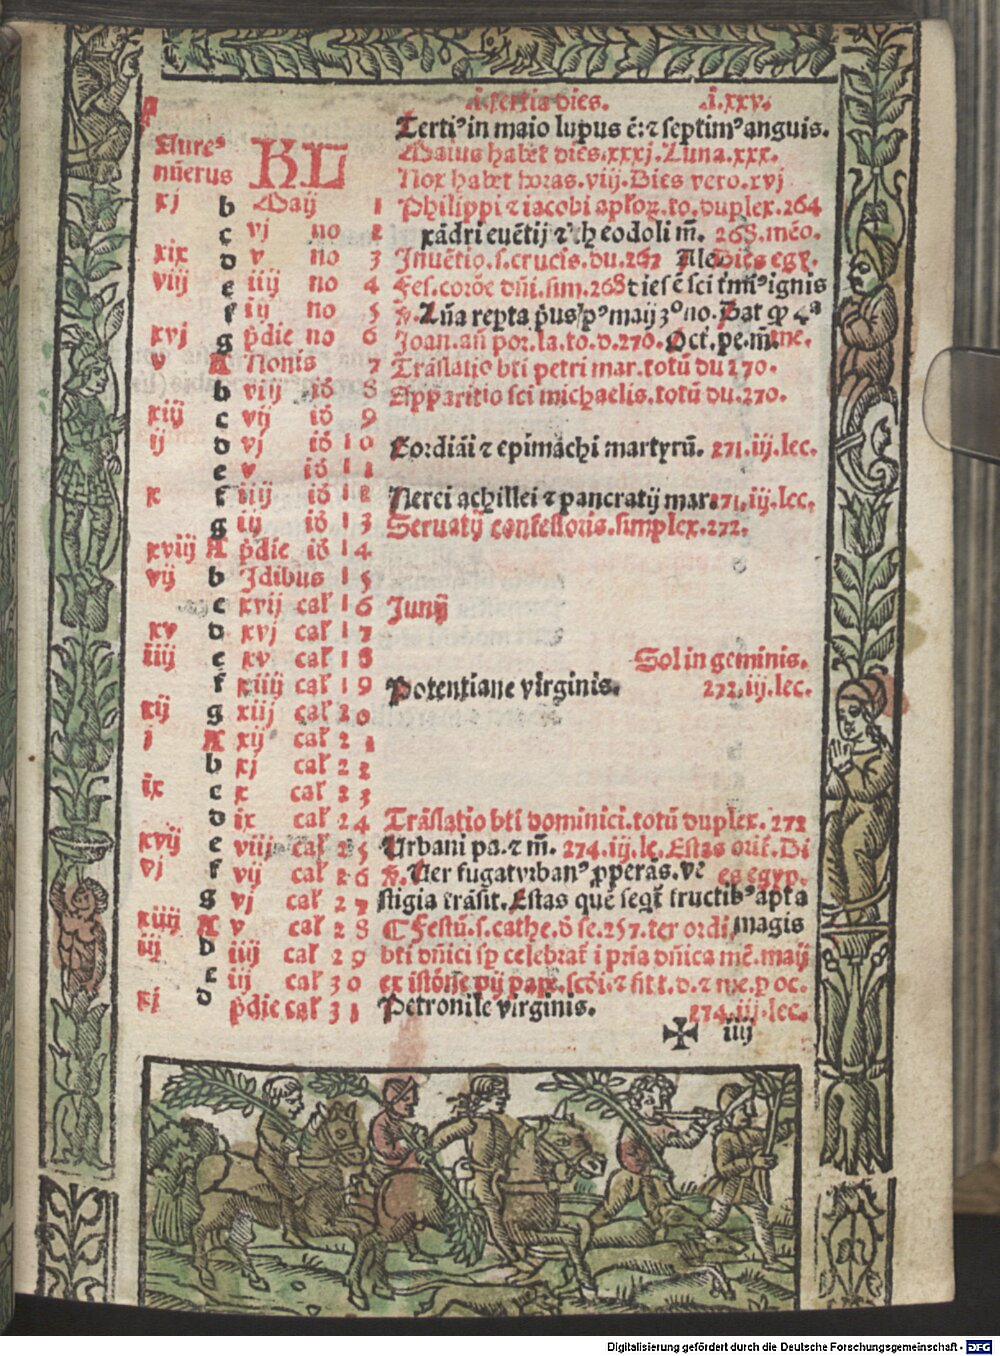 .i.tertia dies. .i.xxv.
A
Tertiꝰ in maio lupus ē: ⁊ septimꝰ anguis.
Aureꝰ KL Maius habet dies.xxxj.Luna.xxx.
nūerus Nox habet horas.viij.Dies vero.xvj
xj b Maij 1 Philippi ⁊ iacobi aploꝝ.to.duplex.264
c vj no 2 xādri euētij ⁊ theodoli m̄. 268.mēo.
xix d v no 3 Inuētio.s.crucis.du.262 Ale Dies egy.
viij e iiij no 4 Fes.corōe dn̄i.sim.268 dies ē sci
f iij no 5 maij 3° no.
xvj g p̄die no 6 Joan.an̄ por.la.to.d.270. Oct.pe.m̄.
v A Nonis 7 Trāslatio bt̄i petri mar.totū du 270.
b viij id 8 Apparitio sci michaelis.totū du.270.
xiij c vij id 9
ij d vj id 10 Gordiāi ⁊ epimachi martyrū. 271.iij.lec.
e v id 11
x f iiij id 12 Nerei achillei ⁊ pancratij mar. 271.iij.lec.
g iij id 13 Seruatij confessoris.simplex.272.
xviij A p̄die id 14
vij b Idibus 15
c xvij cal 16 Junij
xv d xvj cal 17
iiij e xv cal 18 Sol in geminis.
f xiiij cal 19 Potentiane virginis. 272.iij.lec.
xij g xiij cal 20
j A xij cal 21
b xj cal 22
ix c x cal 23
d ix cal 24 Trāslatio bt̄i dominici.totū duplex. 272
xvij e viij cal 25 Urbani pa.⁊ m̄. 274.iij.le. Estas orit̄. Di
vj f vij cal 26 Ver fugat vrbanꝰ ꝓperās. ve es egyp.
g vj cal 27 stigia trāsit. Estas quē seqt̄ fructibꝰ apta
xiiij A v cal 28 Festū.s.cathe.d̄ se.257.ter ordi magis
iij b iiij cal 29 bt̄i dn̄ici sp celebrat̄ i pria dn̄ica mē.maij
c iij cal 30
xj d p̄die cal 31 Petronile virginis. 274.iij.lec.
✠ iiij
Digitalisierung gefördert durch die Deutsche Forschungsgemeinschaft - DFG